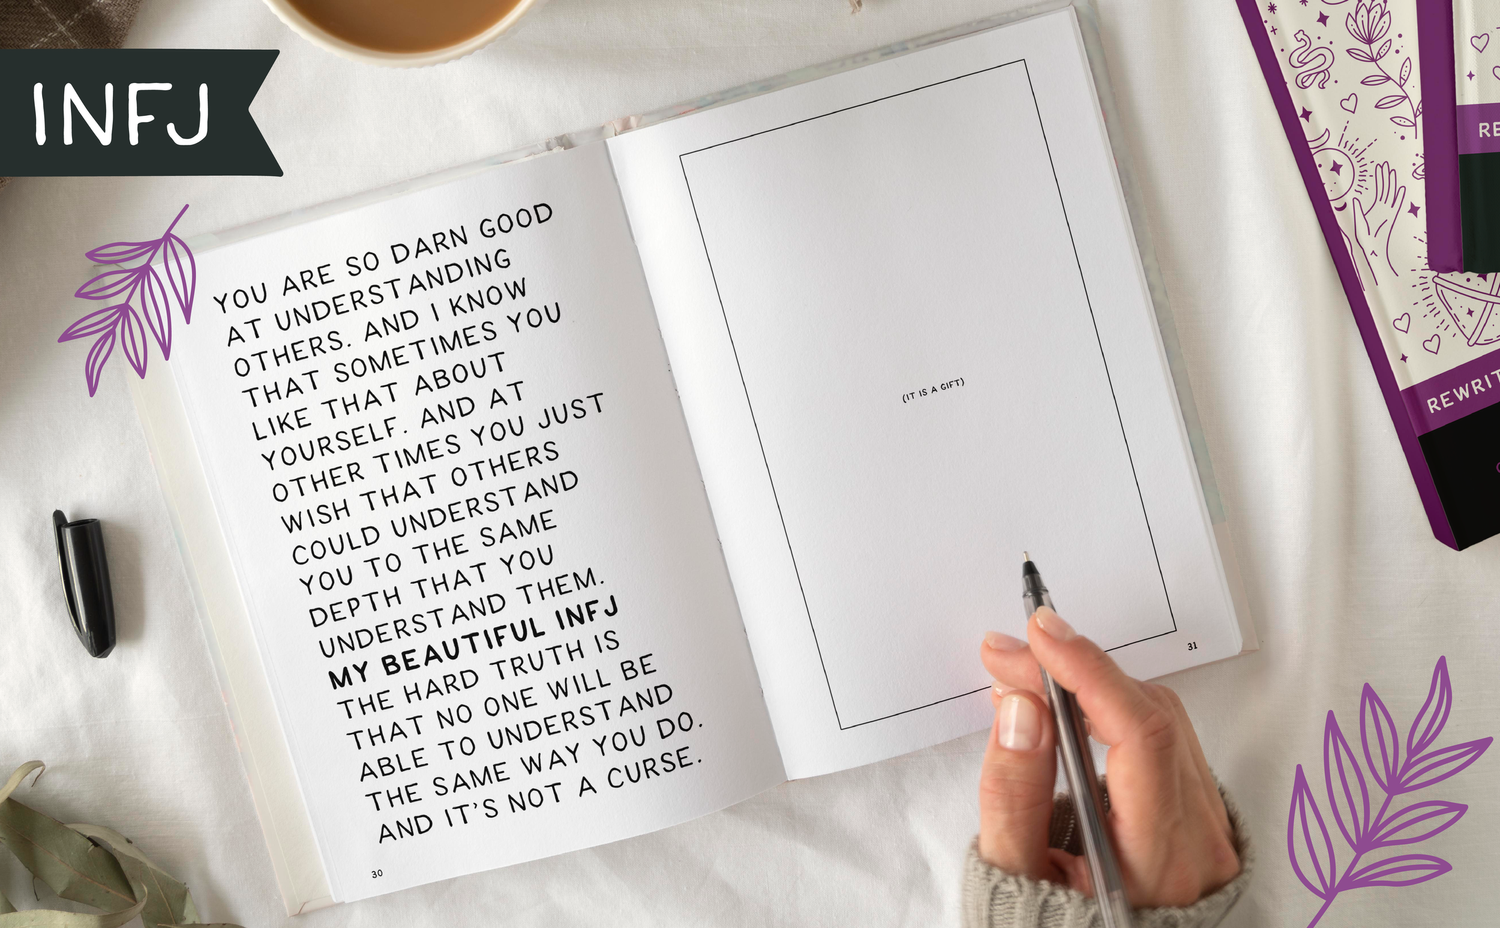 INFJ
YOU ARE SO DARN GOOD
AT UNDERSTANDING
OTHERS. AND I KNOW
THAT SOMETIMES YOU
LIKE THAT ABOUT
YOURSELF. AND AT
OTHER TIMES YOU JUST
WISH THAT OTHERS
COULD UNDERSTAND
YOU TO THE SAME
DEPTH THAT YOU
UNDERSTAND THEM.
MY BEAUTIFUL INFJ
THE HARD TRUTH IS
THAT NO ONE WILL BE
ABLE TO UNDERSTAND
THE SAME WAY YOU DO.
AND IT'S NOT A CURSE.
30
(IT IS A GIFT)
31
RE
REWRIT